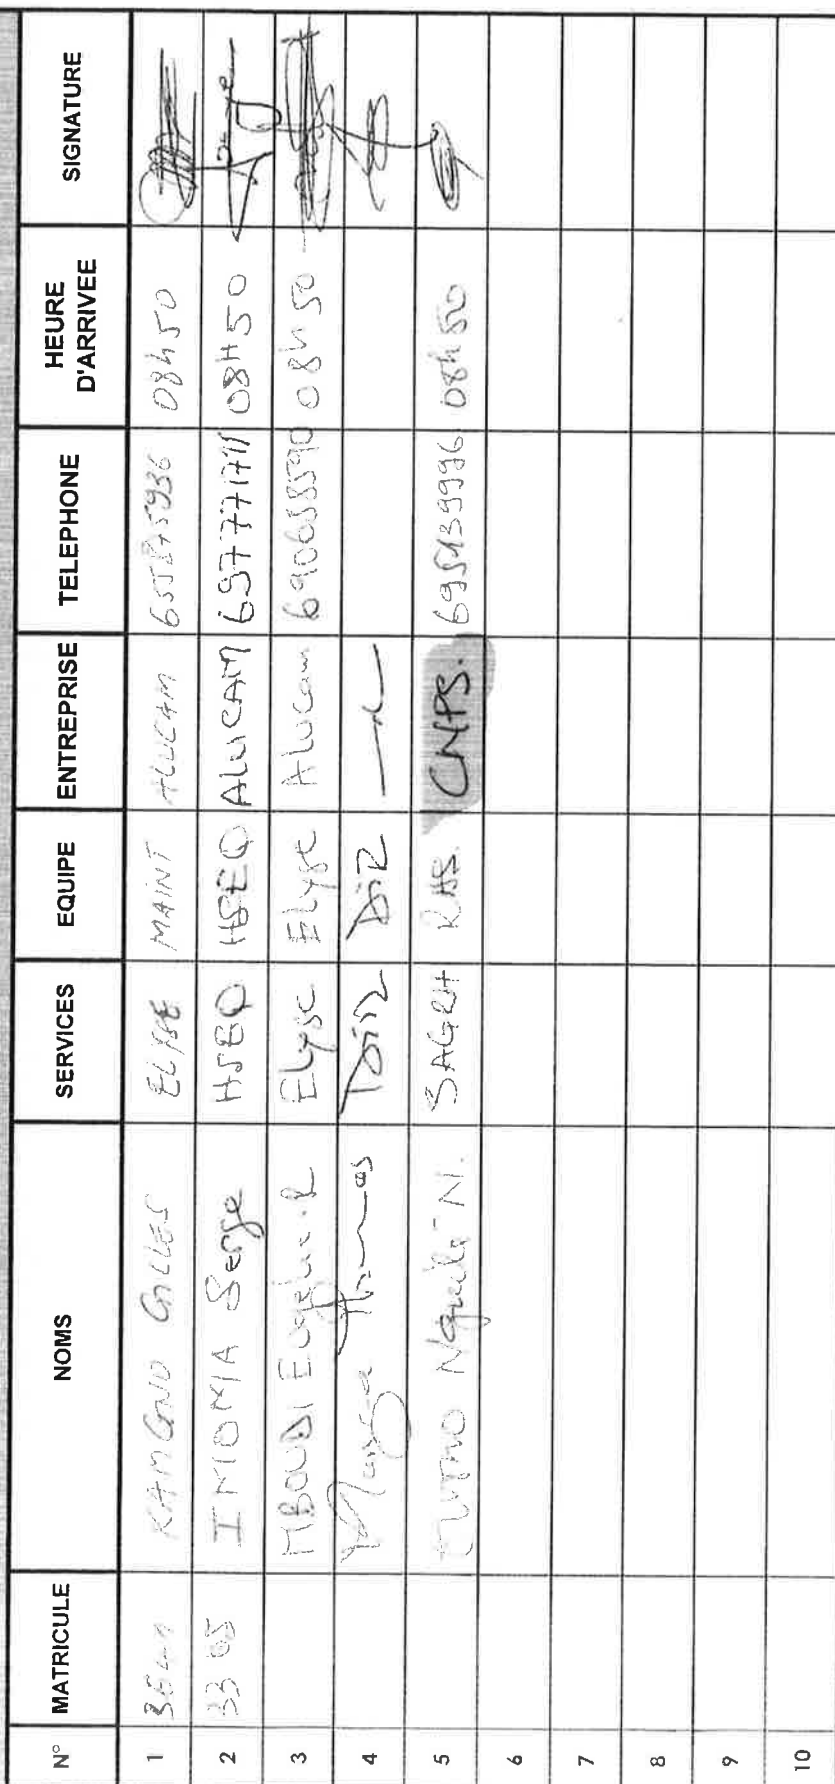 N° MATRICULE NOMS SERVICES EQUIPE ENTREPRISE TELEPHONE HEURE D'ARRIVEE SIGNATURE
1 KAMGNO GILLES ELYSE MAINT ALUCAM 655875936 08h50
2 3305 IMOMA Serge HSEQ HSEQ AluCAM 697771711 08H50
3 MBOUDI Elyse Elyse Alucam 690658590 08h50
4 Thomas DIR DIR
5 SAGRH RHS. CNPS. 695139996 08h50
6
7
8
9
10